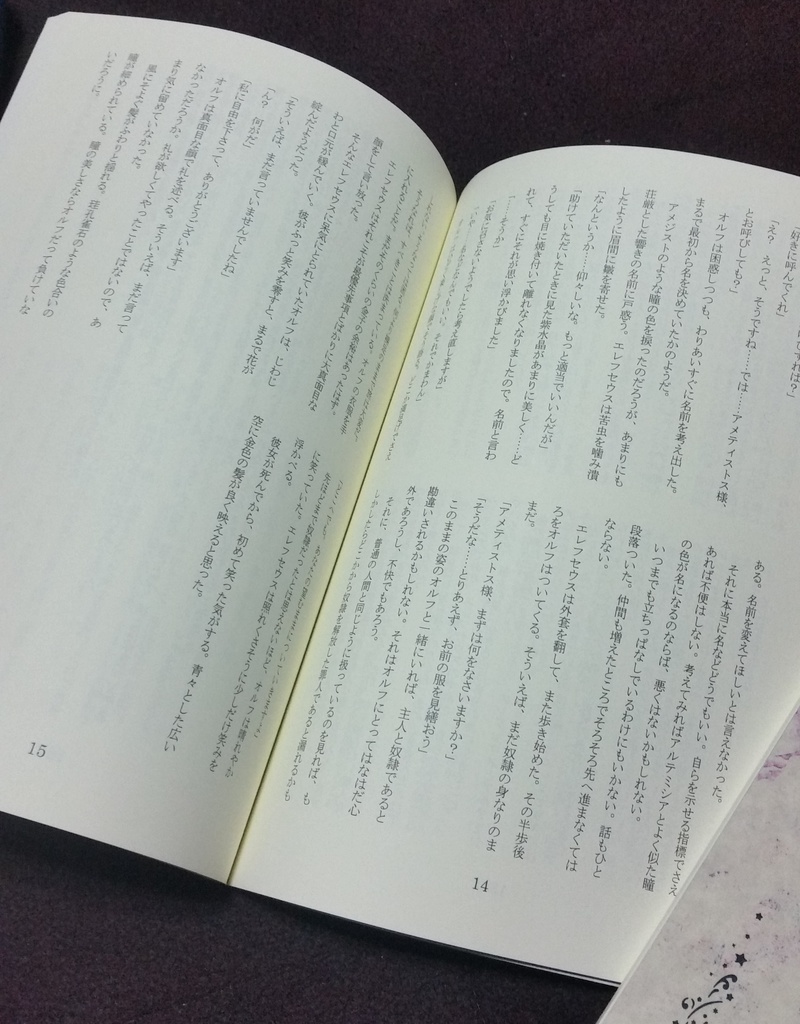 「好きに呼んでくれ」
「え？　えっと、そうですね……では……アメティストス様、
とお呼びしても？」
オルフは困惑しつつも、わりあいすぐに名前を考え出した。
まるで最初から名を決めていたかのようだ。
アメジストのような瞳の色を捩ったのだろうが、あまりにも
荘厳とした響きの名前に戸惑う。エレフセウスは苦虫を噛み潰
したように眉間に皺を寄せた。
「なんというか……仰々しいな。もっと適当でいいんだが」
「助けていただいたときに見た紫水晶があまりに美しく……ど
うしても目に焼き付いて離れなくなりましたので。名前と言わ
れて、すぐにそれが思い浮かびました」
「……そうか」
「お気に召さないようでしたら考え直しますが」
ある。名前を変えてほしいとは言えなかった。
それに本当に名などどうでもいい。自らを示せる指標でさえ
あれば不便はしない。考えてみればアルテミシアとよく似た瞳
の色が名になるのならば、悪くはないかもしれない。
いつまでも立ちっぱなしでいるわけにもいかない。話もひと
段落ついた。仲間も増えたところでそろそろ先へ進まなくては
ならない。
エレフセウスは外套を翻して、また歩き始めた。その半歩後
ろをオルフはついてくる。そういえば、まだ奴隷の身なりのま
まだ。
「アメティストス様、まずは何をなさいますか？」
「そうだな……とりあえず、お前の服を見繕おう」
このままの姿のオルフと一緒にいれば、主人と奴隷であると
勘違いされるかもしれない。それはオルフにとってはなはだ心
外であろうし、不快でもあろう。
それに、普通の人間と同じように扱っているのを見れば、も
しかしたらどこかから奴隷を解放した罪人であると漏れるかも
14
顔をして言い放った。
そんなエレフセウスに呆気にとられていたオルフは、じわじ
わと口元が緩んでいく。彼がふっと笑みを零すと、まるで花が
綻んだようだった。
「そういえば、まだ言っていませんでしたね」
「ん？　何がだ」
「私に自由を下さって、ありがとうございます」
オルフは真面目な顔で礼を述べる。そういえば、まだ言って
なかっただろうか。礼が欲しくてやったことではないので、あ
まり気に留めていなかった。
風にそよぐ髪がふわりと揺れる。孔雀石のような色合いの
瞳が細められている。瞳の美しさならオルフだって負けていな
いだろうに。
先ほどまで奴隷だったとは思えないほど、オルフは晴れやか
に笑っていた。エレフセウスは照れくさそうに少しだけ笑みを
浮かべる。
彼女が死んでから、初めて笑った気がする。青々とした広い
空に金色の髪が良く映えると思った。
15